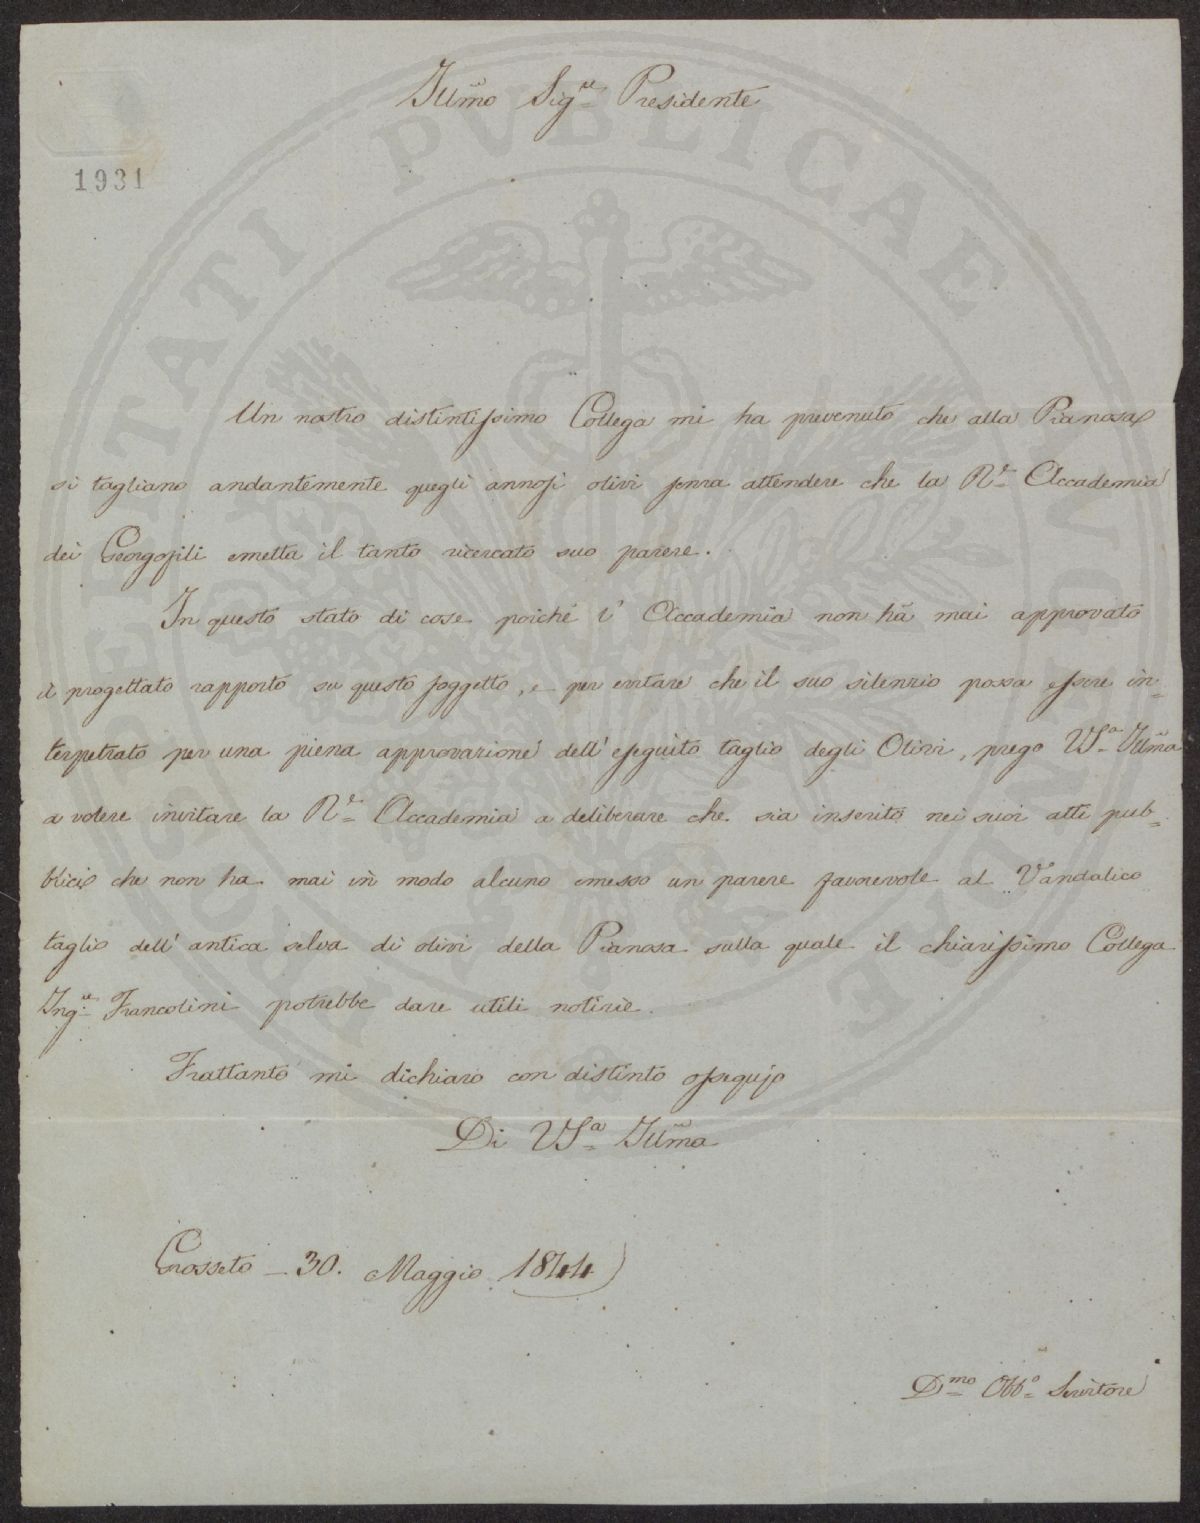 Illmo Sigre Presidente
1931
Un nostro distintissimo Collega mi ha prevenuto che alla Pianosa
si tagliano andantemente quegli annosi olivi senza attendere che la Rle Accademia
dei Georgofili emetta il tanto ricercato suo parere.
In questo stato di cose poiché l' Accademia non hà mai approvato
il progettato rapporto su questo soggetto, e per evitare che il suo silenzio possa essere in=
terpetrato per una piena approvazione dell' eseguito taglio degli Olivi, prego VSa Illma
a volere invitare la Rle Accademia a deliberare che sia inserito nei suoi atti pub=
blici che non ha mai in modo alcuno emesso un parere favorevole al Vandalico
taglio dell' antica selva di olivi della Pianosa sulla quale il chiarissimo Collega
Ingre Francolini potrebbe dare utili notizie.
Frattanto mi dichiaro con distinto ossequjo
Di VSa Illma
Grosseto - 30. Maggio 1844
Dmo Obbo Servitore
PROSPERITATI PVBLICAE AVGENDAE